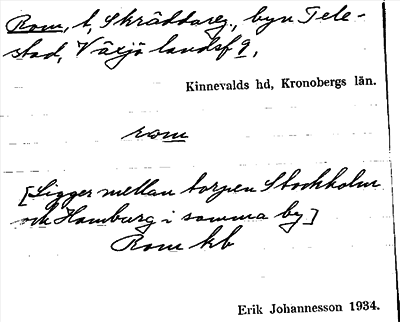 Rom, t, Skräddareg., byn Tele-
stad, Växjö landsf g,
Kinnevalds hd, Kronobergs län.
rom
[Ligger mellan torpen Stockholm
och Hamburg i samma by]
Rom kb
Erik Johannesson 1934.